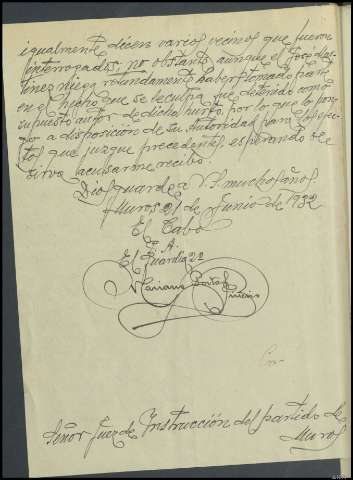 igualmente dicen varios vecinos que fueron
interrogados; no obstante, aunque el José
tinez niega rotundamente haber tomado parte
en el hecho que se le culpa, que detenido como
supuesto autor de dicho hurto, por lo que lo pon-
go a disposición de su Autoridad para los efec-
tos que juzgue precedentes, esperando se
sirva acusarme recibo.
Dios guarde a V.S. muchos años.
Muros 21 de Junio de 1932
El Cabo
A.
El Guardia 2º
Mariano
Señor Juez de Instrucción del partido de
Muros